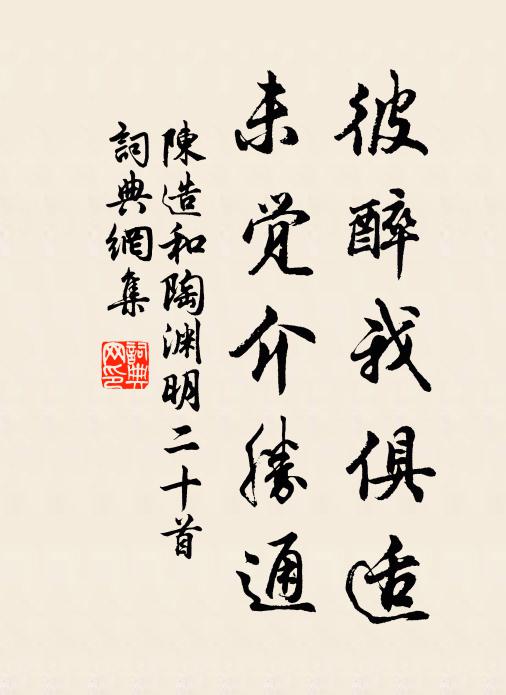 彼醉我俱适
未觉介勝通
陳造和陶渊明二十首
詞典網集
詞典網印